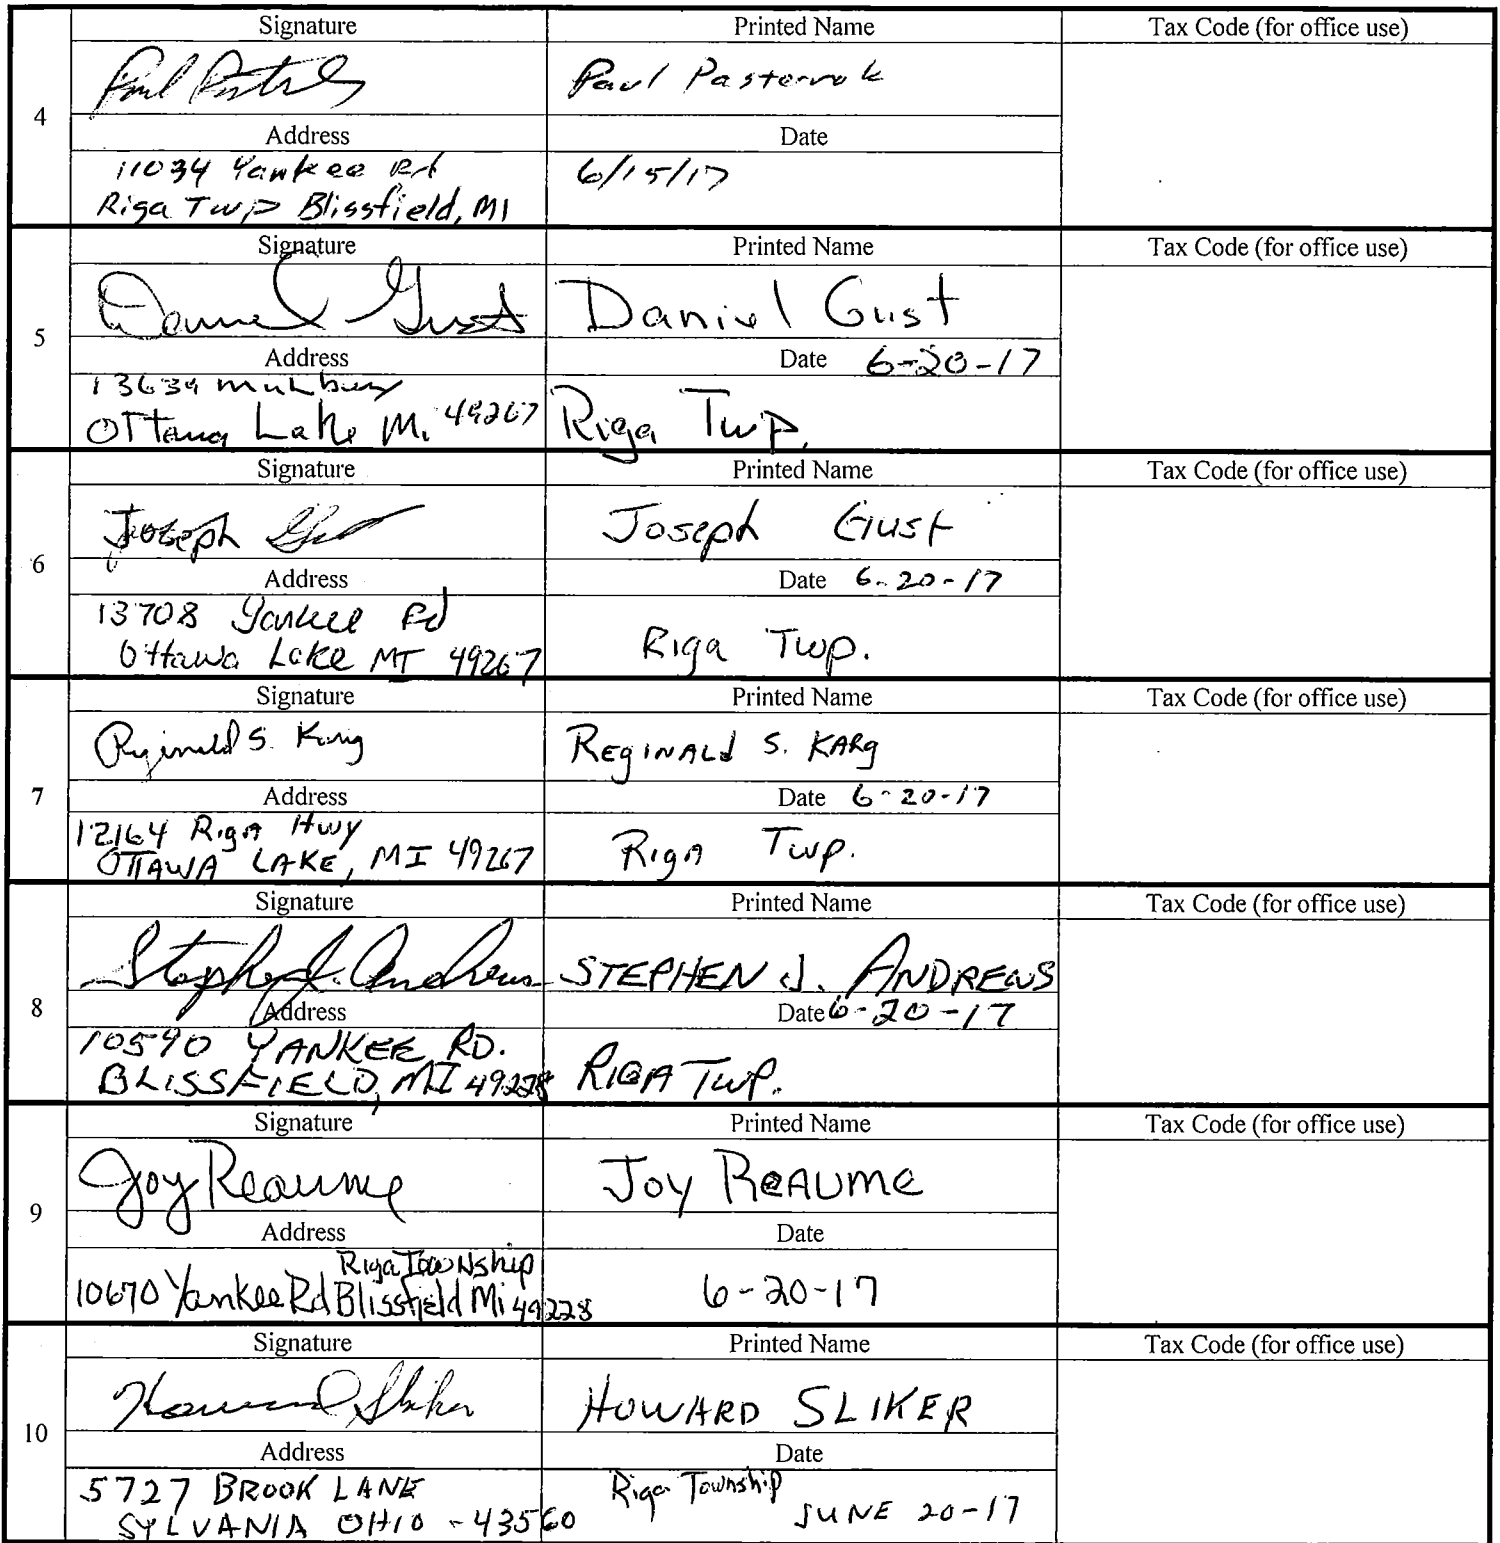 Signature Printed Name Tax Code (for office use)
Paul Pasternak
4
Address Date
11034 Yankee Rd 6/15/17
Riga Twp Blissfield, MI
Signature Printed Name Tax Code (for office use)
Daniel Gust Daniel Gust
5
Address Date 6-20-17
13634 Mulbury
Ottawa Lake Mi 49267 Riga Twp.
Signature Printed Name Tax Code (for office use)
Joseph Gust Joseph Gust
6
Address Date 6-20-17
13708 Yankee Rd
Ottawa Lake MI 49267 Riga Twp.
Signature Printed Name Tax Code (for office use)
Reginald S. Karg REGINALd S. KARg
7
Address Date 6-20-17
12164 RigA Hwy
OTTAWA LAKE, MI 49267 RigA Twp.
Signature Printed Name Tax Code (for office use)
Stephen J. Andrews STEPHEN J. ANDREWS
8
Address Date 6-20-17
10590 YANKEE RD.
BLISSFIELD, MI 49228 RIGA TWP.
Signature Printed Name Tax Code (for office use)
Joy Reaume Joy ReAUMe
9
Address Date
Riga TowNship
10670 Yankee Rd Blissfield Mi 49228 6-20-17
Signature Printed Name Tax Code (for office use)
Howard Sliker HOWARD SLIKER
10
Address Date
5727 BROOK LANE Riga Township
SYLVANIA OHIO - 43560 JUNE 20-17